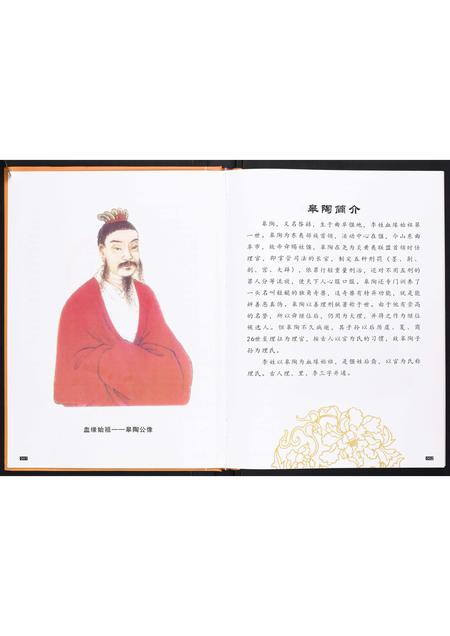 血缘始祖——皋陶公像
皋陶简介
皋陶，又名咎繇，生于曲阜偃地，李姓血缘始祖第
一世。皋陶为东夷部族首领，活动中心在偃，今山东曲
阜市，故帝舜赐姓偃。皋陶在尧为炎黄夷联盟首领时任
理官，即掌管司法的长官，制定五种刑罚（墨、劓、
剕、宫、大辟），依罪行轻重量刑治，还对不用五刑的
罪人分等流放，使天下人心服口服。皋陶还专门训养了
一头名叫
的独角奇兽，这奇兽有特异功能，就是能
辨善恶真伪。皋陶以善理刑狱著称于世。由于他有崇高
的名誉，所以舜继位后，仍用为大理，并将之作为继位
候选人。但皋陶不久病逝，其子孙以后历虞、夏、商
26世至理征为理官，按古人以官为氏的习惯，故皋陶子
孙为理氏。
李姓以皋陶为血缘始祖，是偃姓后裔，以官为氏称
理氏。古人理、里、李三字并通。